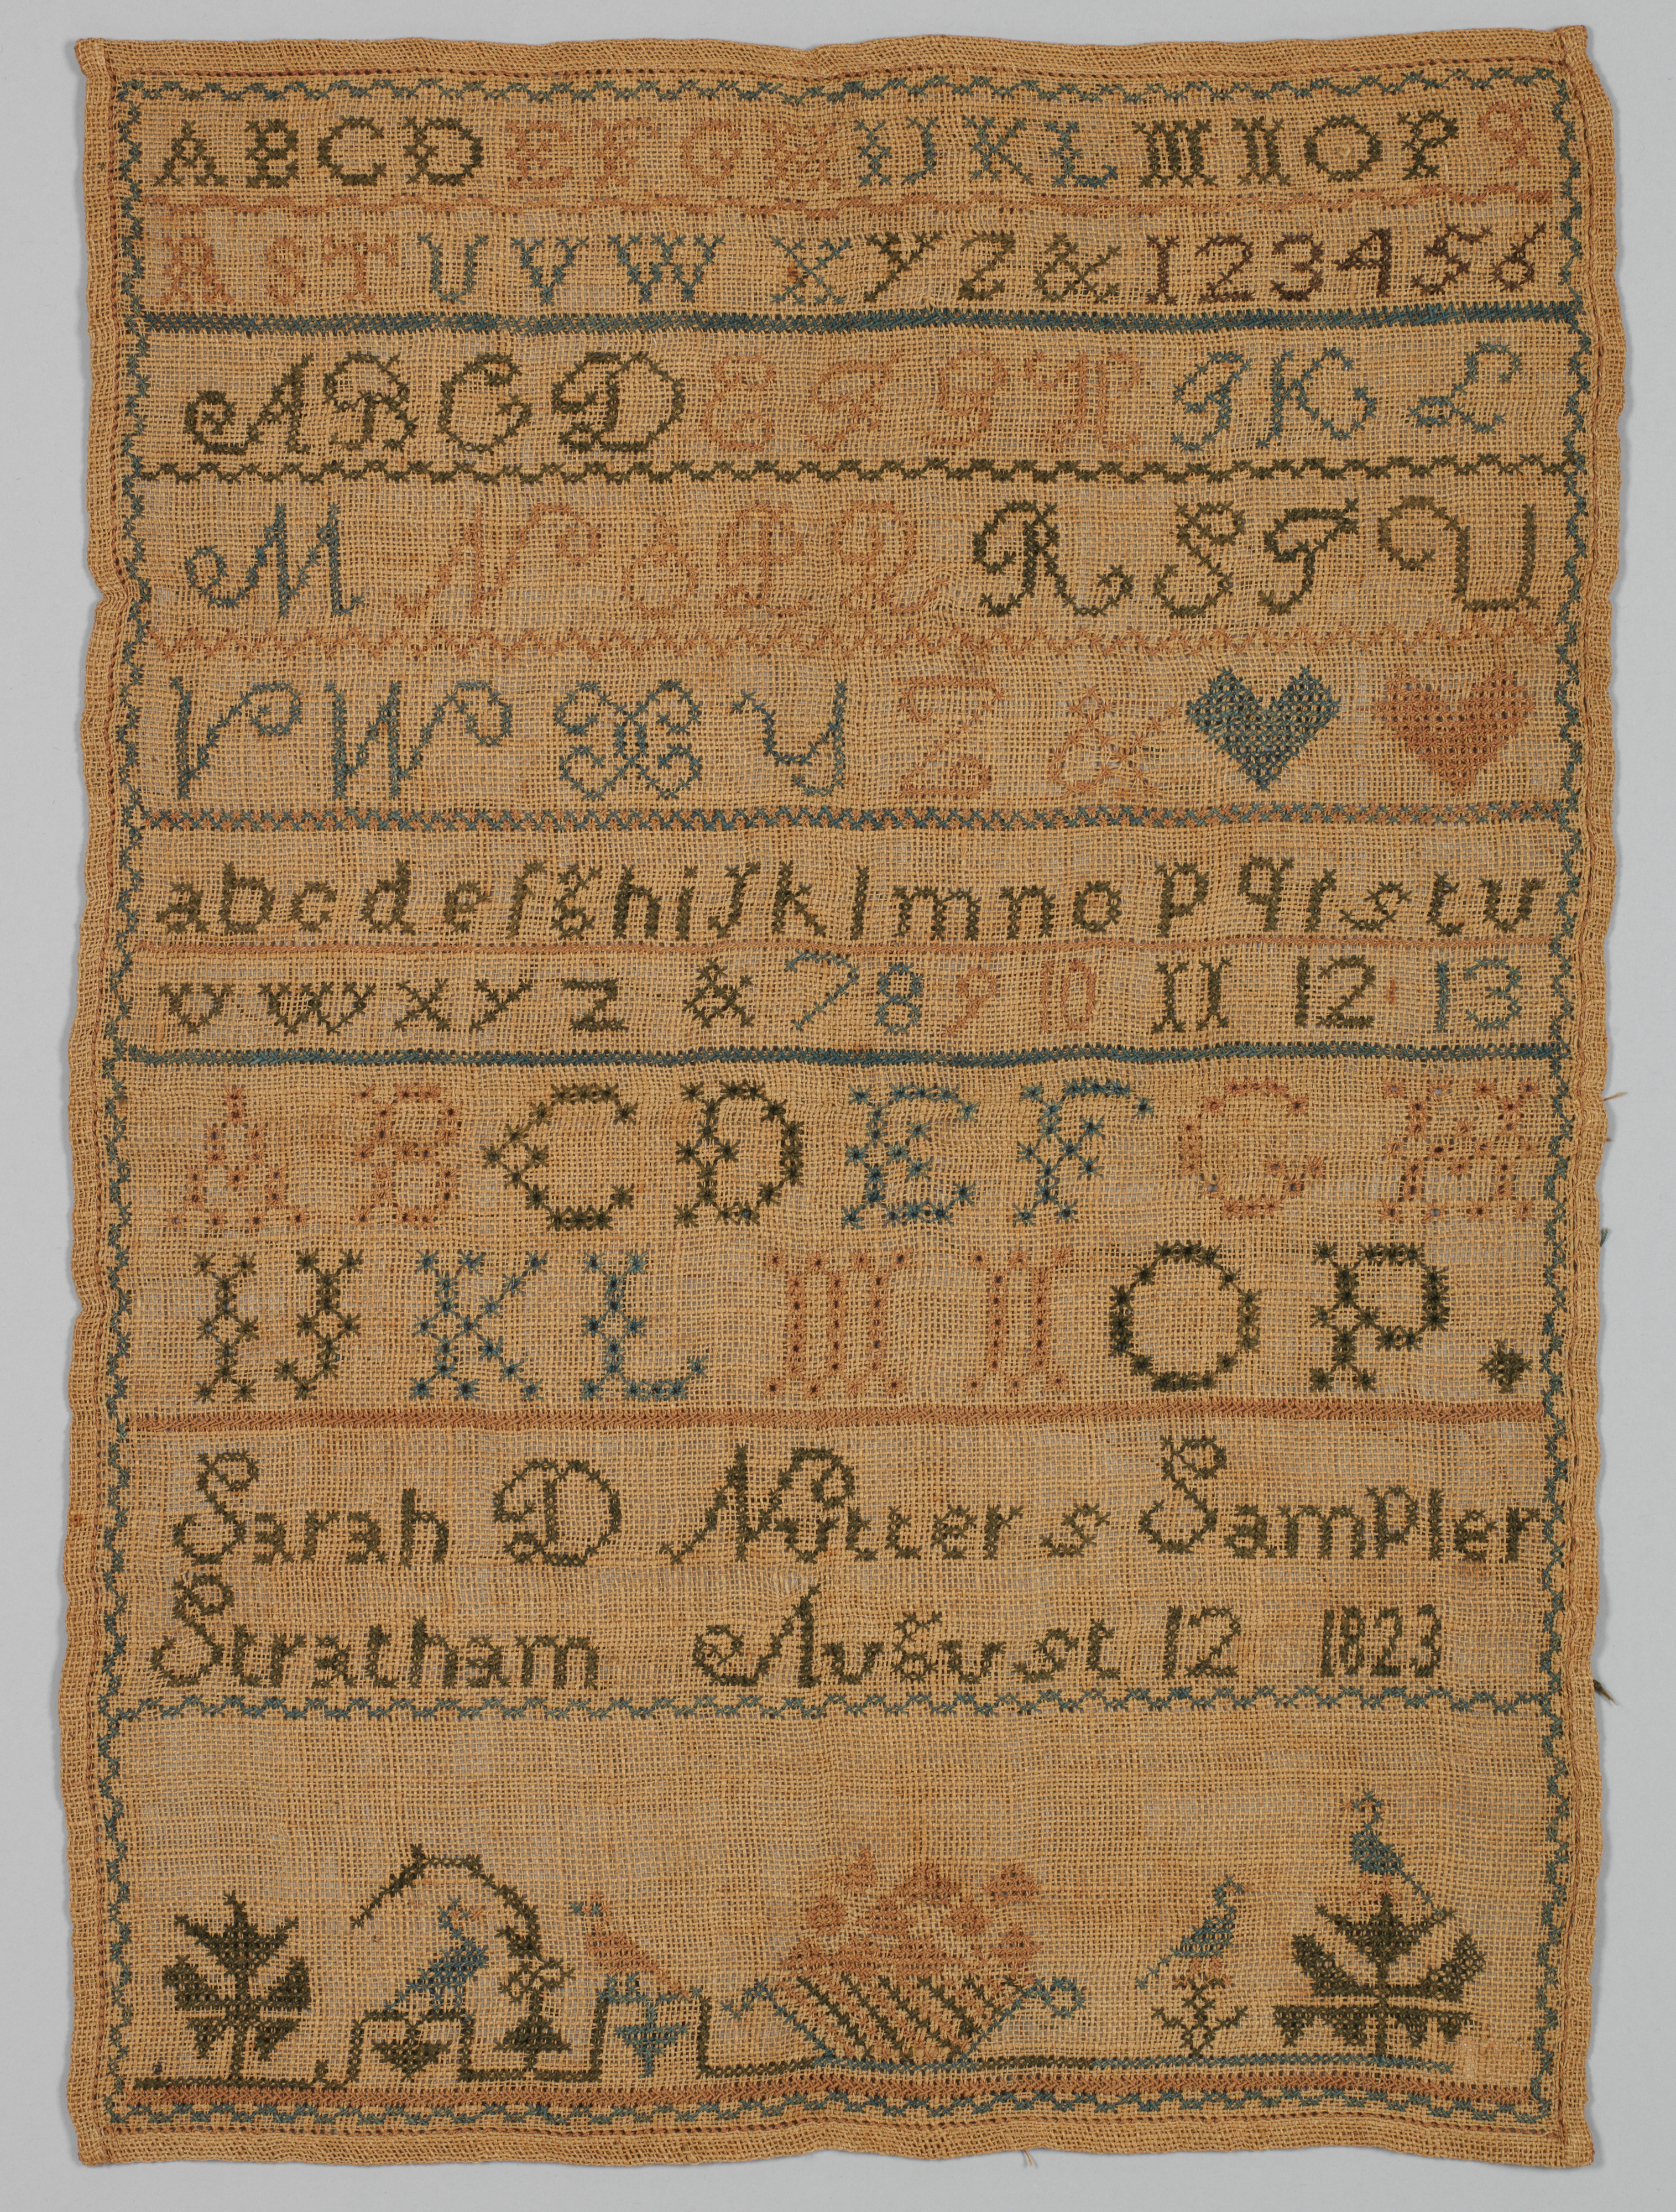 A B C D E F G H I J K L M N O P Q
R S T U V W X Y Z & 1 2 3 4 5 6
A B C D E F G H I K L
M N O P Q R S T U
V W X Y Z &
a b c d e f g h i j k l m n o p q r s t u
v w x y z & 7 8 9 10 11 12 13
A B C D E F G H
I J K L M N O P .
Sarah D Nutter s Sampler
Stratham August 12 1823